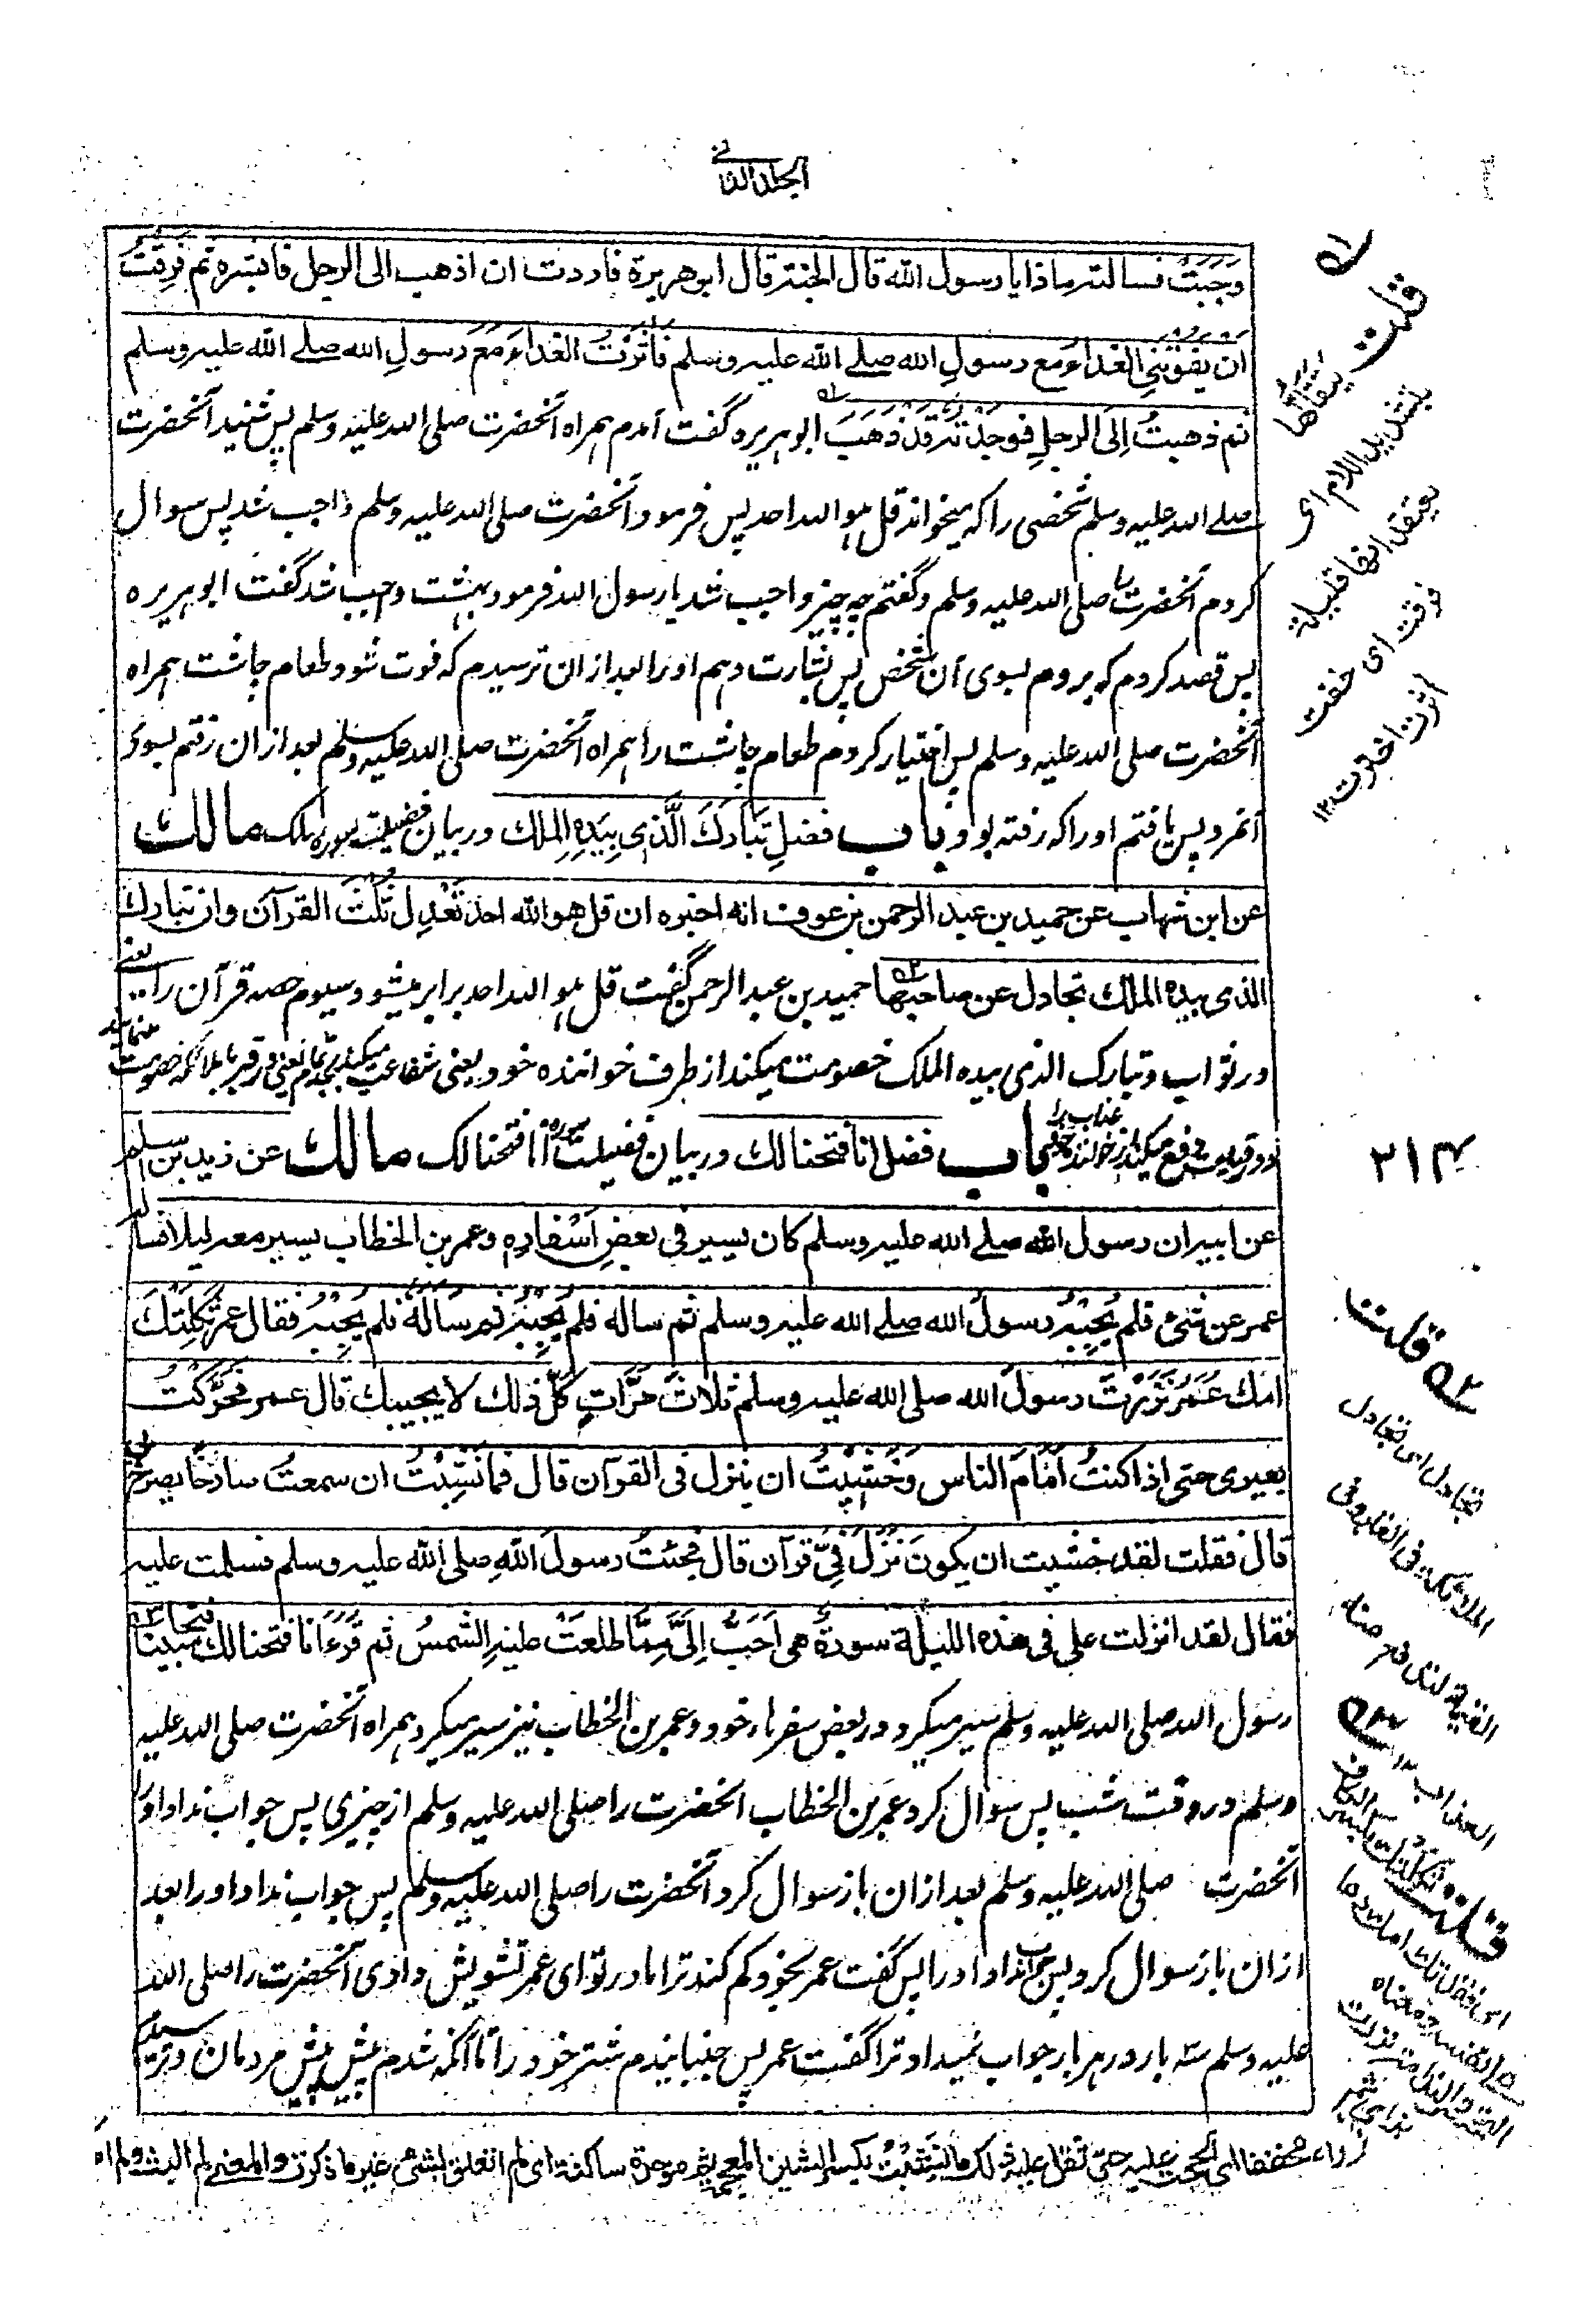 الجلد الثانی
وَجَبَتْ فسالته ماذا یا رسول الله قال الجنة قال ابو هریرة فاردت ان اذهب الی الرجل فابشره ثم فَرِقتُ
اَن یفوتَنی الغداءُ مع رسولِ الله صلے الله علیه وسلم فاٰثرتُ الغداءَ مَعَ رسولِ الله صلے الله علیه وسلم
ثم ذهبتُ اِلَی الرجلِ فوجدتُه قد ذَهَبَ ابو هریره گفت آمدم همراه آنحضرت صلی الله علیه وسلم پس شنید آنحضرت
صلے الله علیه وسلم شخصی را که میخواند قل هو الله احد پس فرمود آنحضرت صلی الله علیه وسلم واجب شد پس سوال
کردم آنحضرت را صلی الله علیه وسلم وگفتم چه چیز واجب شد یا رسول الله فرمود بهشت واجب شد گفت ابو هریره
پس قصد کردم که بروم بسوی آن شخص پس بشارت دهم او را بعد ازان ترسیدم که فوت شود طعام چاشت همراه
آنحضرت صلی الله علیه وسلم پس اختیار کردم طعام چاشت را همراه آنحضرت صلی الله علیه وسلم بعد ازان رفتم بسوی
آنمرد پس یافتم او را که رفته بود باب فضلِ تَبَارَكَ الَّذِی بِیَدِهِ الملك در بیان فضیلت سوره ملک مالك
عن ابن شهاب عن حمید بن عبد الرحمن بن عوف انه اخبره ان قل هو الله احد تَعْدِل ثُلُثَ القرآن وان تبارك
الذی بیده الملك تجادل عن صاحبها حمید بن عبد الرحمن گفت قل هو الله احد برابر میشود سیوم حصه قرآن را یعنے
در ثواب وتبارک الذی بیده الملک خصومت میکند از طرف خواننده خود یعنی شفاعت میکند
باب فضل انا فتحنا لك در بیان فضیلت سوره انا فتحنا لک مالك عن زید بن اسلم
عن ابیه ان رسول الله صلے الله علیه وسلم کان یسیر فی بعضِ اَسْفارِه وعمر بن الخطاب یسیر معه لیلا فساله
عمر عن شیء فلم یُجِبْه رسولُ الله صلے الله علیه وسلم ثم ساله فلم یُجِبْه ثم سَاَلَهُ فلم یُجِبْه فقال عمر ثَکِلَتْكَ
امك عُمَرُ نَزَرْتَ رسولَ الله صلی الله علیه وسلم ثلاثَ مَرَّاتٍ کلّ ذلك لا یجیبك قال عمر فحَرَّکْتُ
بعیری حتی اذا کنتُ اَمَامَ الناس وَخَشِیْتُ ان ینزل فی القرآن قال فما نَشِبْتُ ان سمعتُ صارخًا یصرخ بی
قال فقلت لقد خشیت ان یکونَ نَزَلَ فِیَّ قرآن قال فجئتُ رسولَ اللهِ صلی الله علیه وسلم فسلمت علیه
فقال لقد انزلت علی فی هذه اللیلة سورةٌ هی اَحَبُّ اِلَیَّ مِمَّا طلعَتْ علیهِ الشمسُ ثم قَرَءَ انا فتحنا لك فتحا مبینا
رسول الله صلی الله علیه وسلم سیر میکرد در بعض سفرهاء خود وعمر بن الخطاب نیز سیر میکرد همراه آنحضرت صلی الله علیه
وسلم در وقت شب پس سوال کرد عمر بن الخطاب آنحضرت را صلی الله علیه وسلم از چیزی پس جواب نداد او را
آنحضرت صلی الله علیه وسلم بعد ازان باز سوال کرد آنحضرت را صلی الله علیه وسلم پس جواب نداد او را بعد
ازان باز سوال کرد پس جواب نداد او را پس گفت عمر بخود گم کند ترا مادر تو ای عمر تشویش دادی آنحضرت را صلی الله
علیه وسلم سه بار در هر بار جواب نمیداد ترا گفت عمر پس جنبانیدم شتر خود را تا آنکه شدم پیش پیش مردمان وترسیدم
قلت
یتقالها
بتشدید اللام ای
یعتقد انها قلیلة
فرقت ای خفت
آثرت اخترت ۱۲
۲۱۴
قلت
تجادل ای تجادل
الملائکة فی القبر
العذاب ۱۲
قلت
نزرت مخففا ای الححت علیه بکسر الشین المعجمة ثم موحدة ساکنة ای لم اتعلق بشیء غیر ما ذکرت والمعنے لم البث